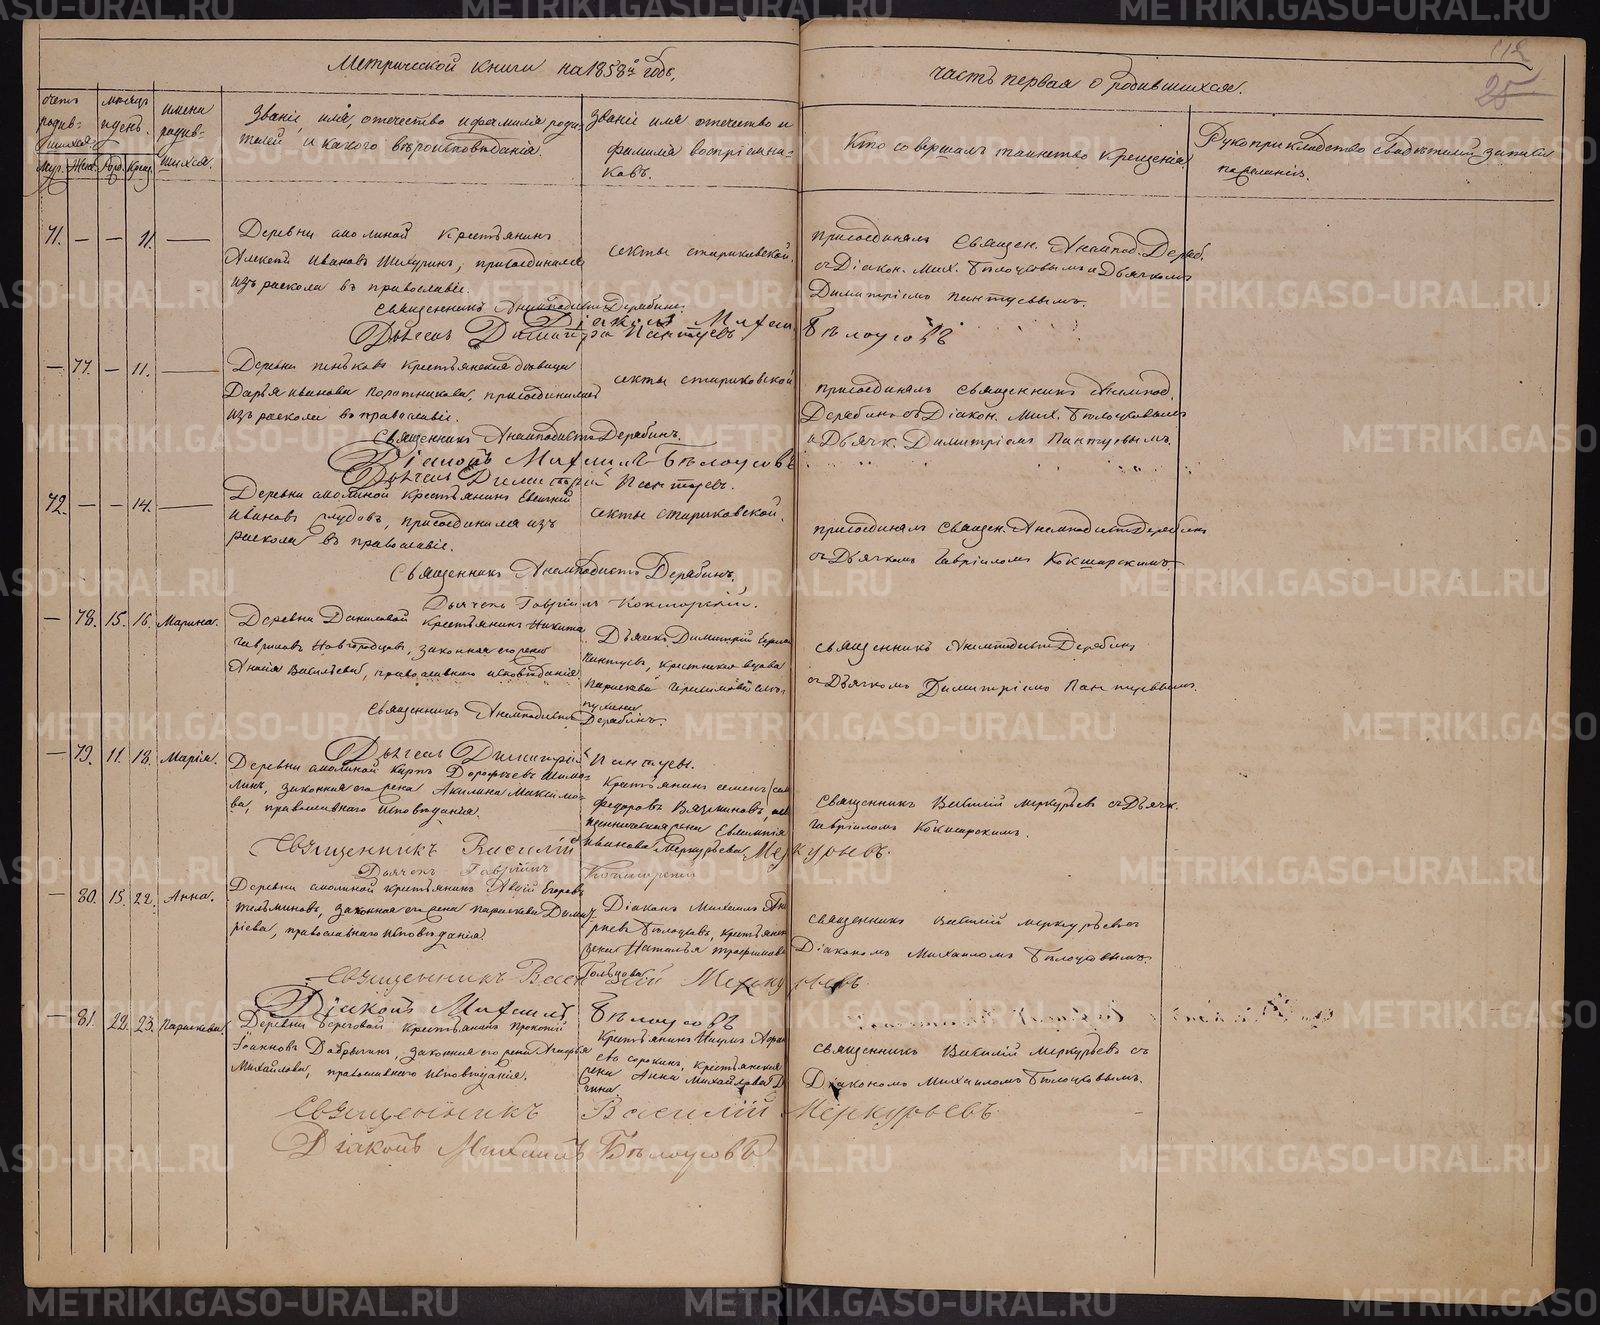 Метрической книги на 1858й годъ,
часть первая о родившихся.
112
25
счетъ родив-шихся.
мѣсяцъ и день.
имена родив-шихся.
Званіе, имя, отечество и фамилія роди-
телей, и какого вѣроисповѣданія.
Званіе имя отечество и
фамилія воспріемни-
ковъ.
Кто совершалъ таинство крещенія
Рукоприкладство свидѣтелей записи
по желанію.
Муж. Жен. Рожд. Крещ.
71. — — 11. —
Деревни амолиной крестьянинъ
Алексѣй Ивановъ присоединился
изъ раскола въ православіе.
секты стариковской.
присоединялъ Священ. Анемпод. Дераб.
съ Діакон. Мих. Бѣлоусовымъ и Дьячкомъ
Димитріемъ Пантуевымъ.
Священникъ Анемподистъ Дерабинъ.
Діаконъ Михаилъ Бѣлоусовъ
Дьячекъ Димитрій Пантуевъ
— 77. — 11. —
Деревни крестьянская дѣвица
Дарья Иванова присоединилась
изъ раскола въ православіе.
секты стариковской
присоединялъ священникъ Анемпод.
Дерабинъ съ Діакон. Мих. Бѣлоусовымъ
и Дьячк. Димитріемъ Пантуевымъ.
Священникъ Анемподистъ Дерабинъ.
Діаконъ Михаилъ Бѣлоусовъ
Дьячекъ Димитрій Пантуевъ.
72. — — 14. —
Деревни амолиной крестьянинъ Евгеній
Ивановъ присоединился изъ
раскола въ православіе.
секты стариковской.
присоединялъ Священ. Анемподистъ Дерабинъ
съ Дьячкомъ Гавріиломъ Кокшарскимъ
Священникъ Анемподистъ Дерабинъ.
Дьячекъ Гавріилъ Кокшарскій.
— 78. 15. 16. Марина.
Деревни Даниловой крестьянинъ Никита
Гавриловъ Новгородцовъ, законная его жена
Анисія Васильева, православнаго исповѣданія
Дьячекъ Димитрій
Пантуевъ, крестьянская вдова
Параскева Герасимова
священникъ Анемподистъ Дерабинъ
съ Дьячкомъ Димитріемъ Пантуевымъ.
Священникъ Анемподистъ Дерабинъ.
Дьячекъ Димитрій Пантуевъ.
— 79. 11. 18. Марія.
Деревни амолиной Карпъ Дорофеевъ
законная его жена Акилина Максимо-
ва, православнаго исповѣданія.
Крестьянинъ Семенъ
Федоровъ Вязминовъ,
жена Евлампія
Иванова Меркурьева
Священникъ Василій Меркурьевъ съ Дьячк.
Гавріиломъ Кокшарскимъ.
Священникъ Василій Меркурьевъ.
Дьячекъ Гавріилъ Кокшарскій
— 80. 15. 22. Анна.
Деревни амолиной крестьянинъ Авдій Егоровъ
Тельминовъ, законная его жена Параскева Димит-
ріева, православнаго исповѣданія.
Діаконъ Михаилъ
Бѣлоусовъ, крестьянск
жена Наталья Трофимова
Гольцова
Священникъ Василій Меркурьевъ съ
Діакономъ Михаиломъ Бѣлоусовымъ.
Священникъ Василій Меркурьевъ.
Діаконъ Михаилъ Бѣлоусовъ
— 81. 22. 23. Параскева
Деревни Береговой крестьянинъ Прокопій
Іоанновъ Добрынинъ, законная его жена
Михайлова, православнаго исповѣданія.
Крестьянинъ Наумъ
Сорокинъ, крестьянская
жена Анна Михайлова
Священникъ Василій Меркурьевъ съ
Діакономъ Михаиломъ Бѣлоусовымъ.
Священникъ Василій Меркурьевъ
Діаконъ Михаилъ Бѣлоусовъ
METRIKI.GASO-URAL.RU